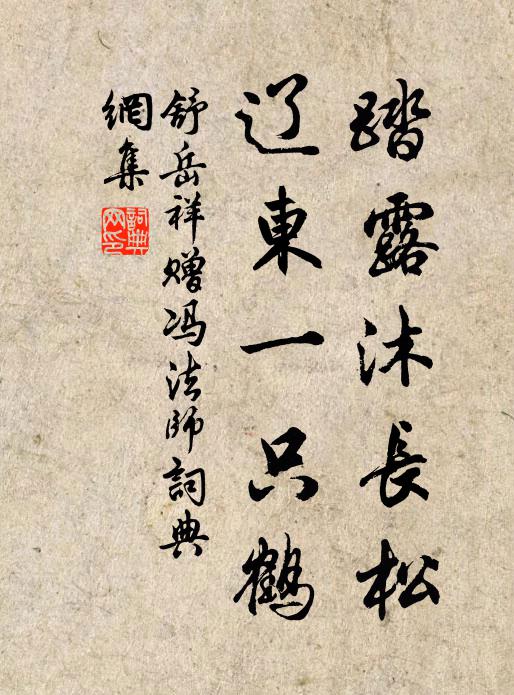 踏露沐長松
辽東一只鶴
舒岳祥赠冯法師詞典
網集
詞典网印